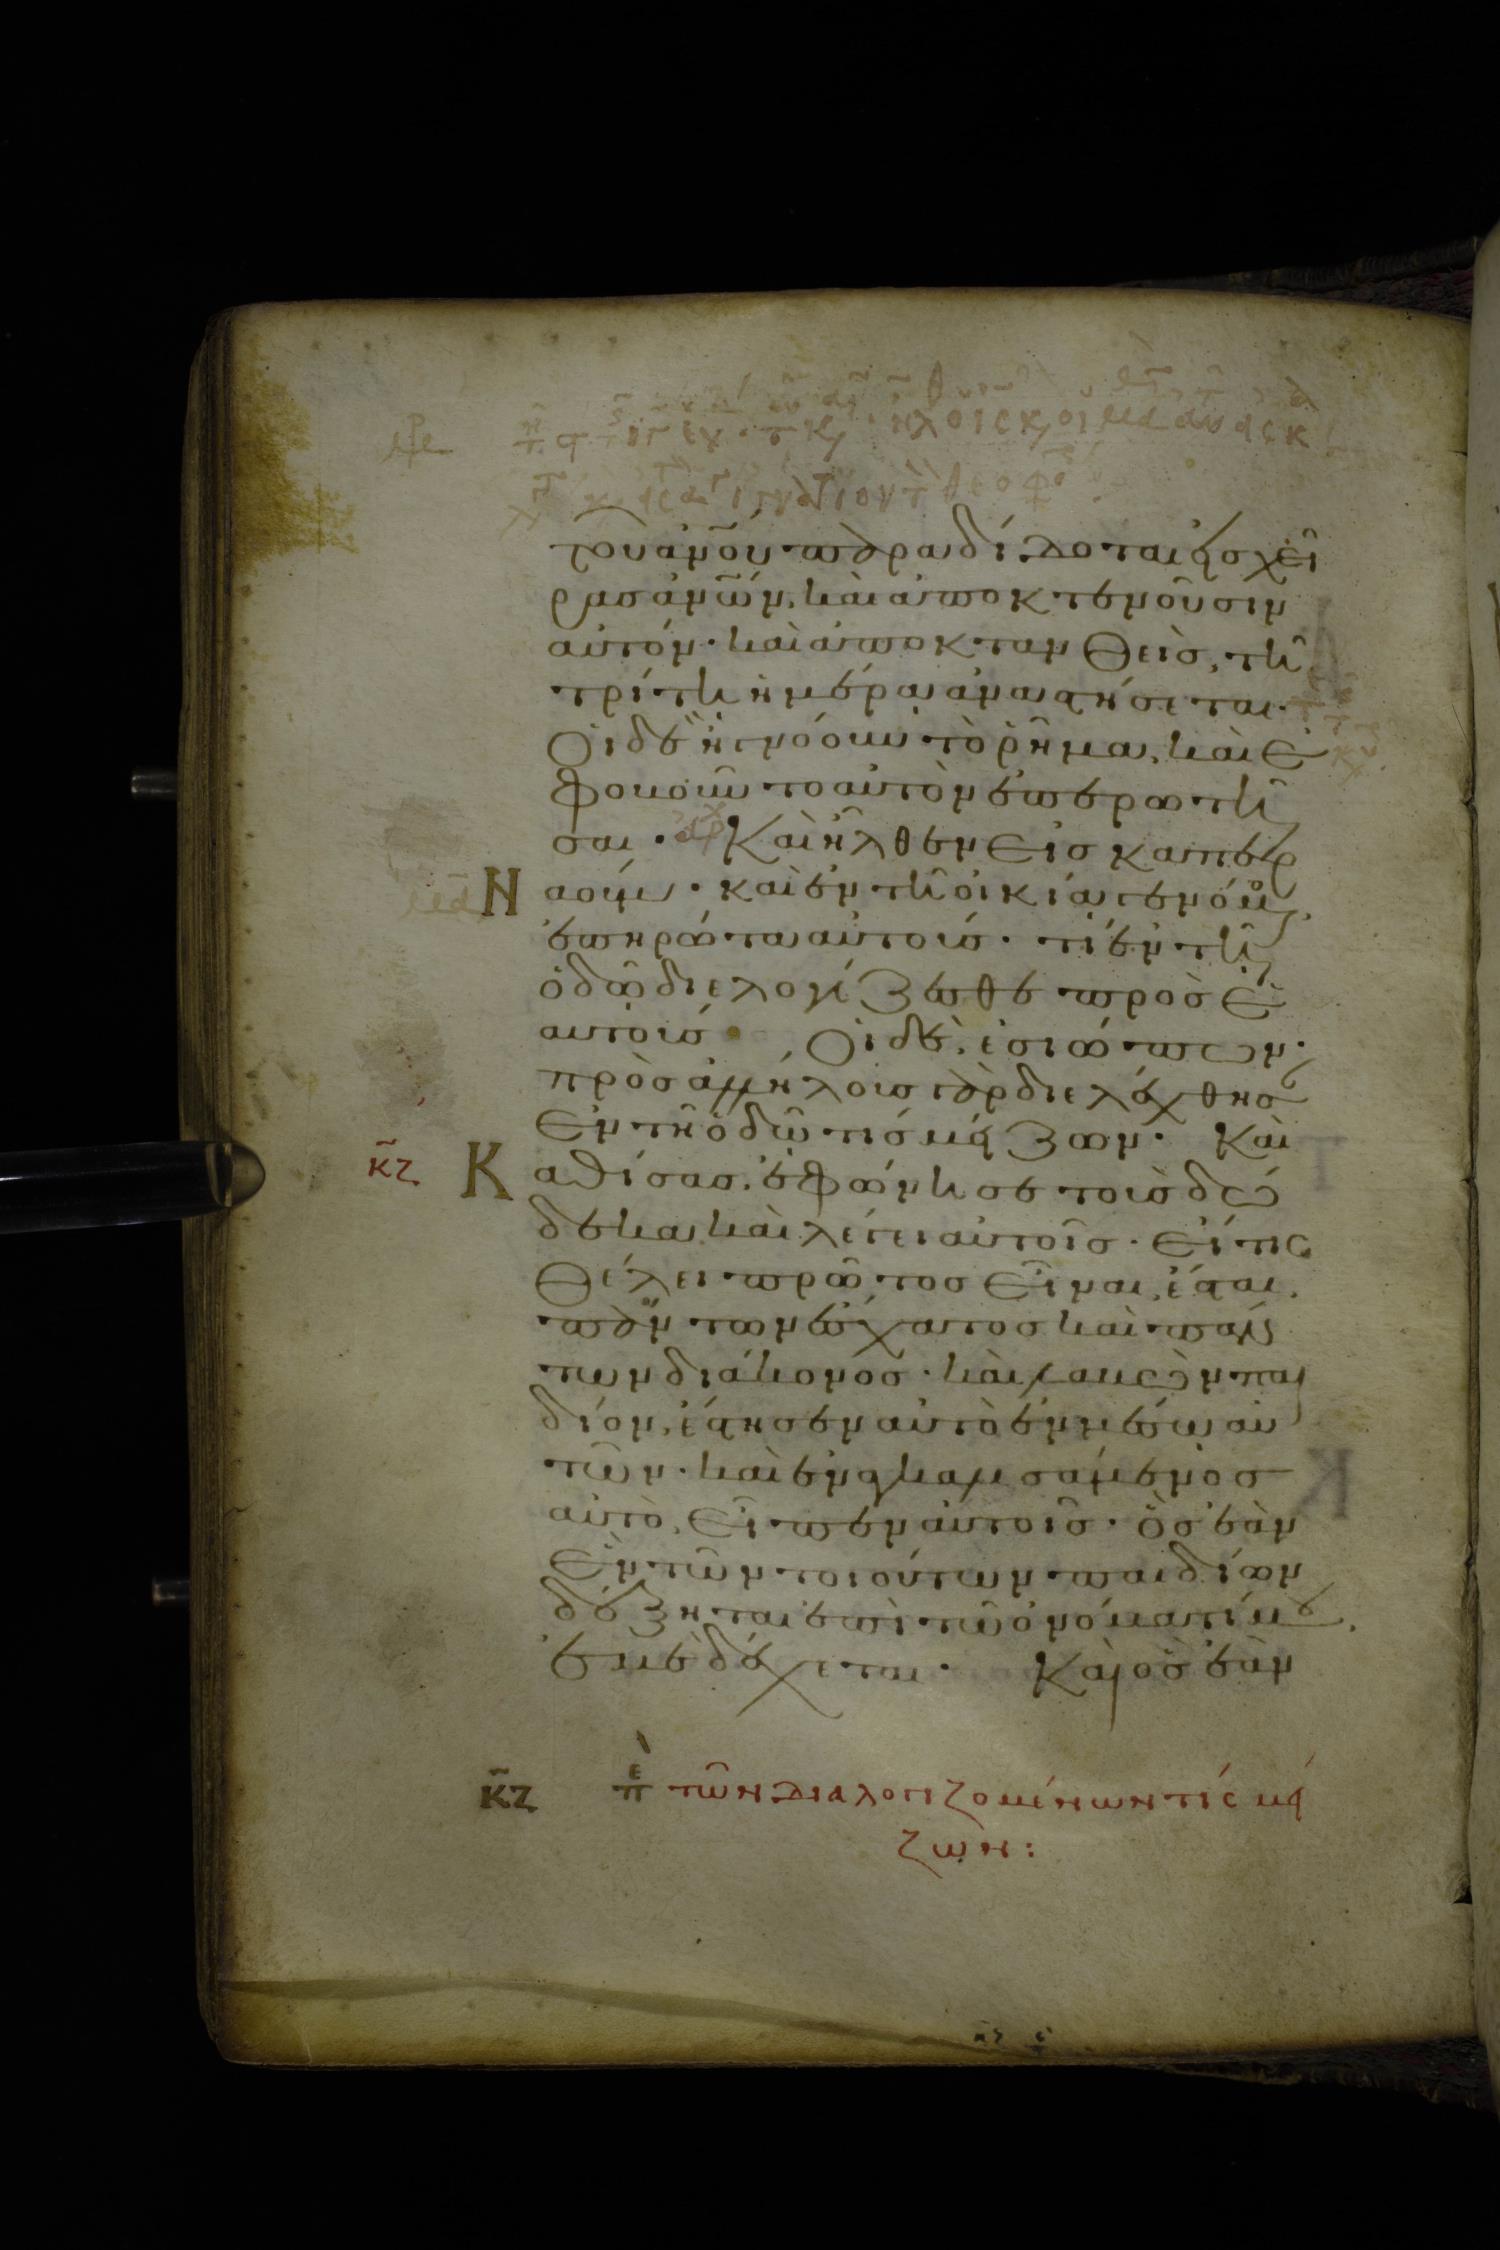 τοῦ ἀν̅ο̅υ̅ παραδίδοται εἰς χεῖ
ρας ἀν̅ω̅ν̅, καὶ ἀποκτενοῦσιν
αὐτόν · καὶ ἀποκτανθεὶς, τῆ
τρίτη ἡμέρα ἀναστήσεται ·
Οἱ δὲ ἠγνόουν τὸ ῥῆμα, καὶ ἐ
φοβοῦντο αὐτὸν ἐπερωτῆ
σαι · Καὶ ἦλθεν εἰς καπερ
Ναούμ · καὶ ἐν τῆ οἰκία γενόμενος
ἐπηρώτα αὐτούς · τί ἐν τῆ
ὁδῶ διελογίζεσθε πρὸς ἑ
αυτούς Οἱ δὲ, ἐσιώπων ·
πρὸς ἀλλήλους γὰρ διελέχθησαν
ἐν τῆ ὁδῶ τίς μείζων · Καὶ
κ̅ζ̅ Καθίσας, ἐφώνησε τοὺς δώ
δεκα καὶ λέγει αὐτοῖς · εἴ τις
θέλει πρῶτος εἶναι, ἔσται
πάντων ἔσχατος καὶ πάν
των διάκονος · καὶ λαβὼν παι
δίον, ἔστησεν αὐτὸ ἐν μέσω αὐ
τῶν · καὶ ἐναγκαλισάμενος
αὐτὸ, εἶπεν αὐτοῖς · ὃς ἐὰν
ἓν τῶν τοιούτων παιδίων
δέξηται ἐπὶ τῶ ὀνόματί μου,
ἐμὲ δέχεται · Καὶ ὃς ἐὰν
κ̅ζ̅ πε τῶν διαλογιζομένων τίς μεί
ζων :